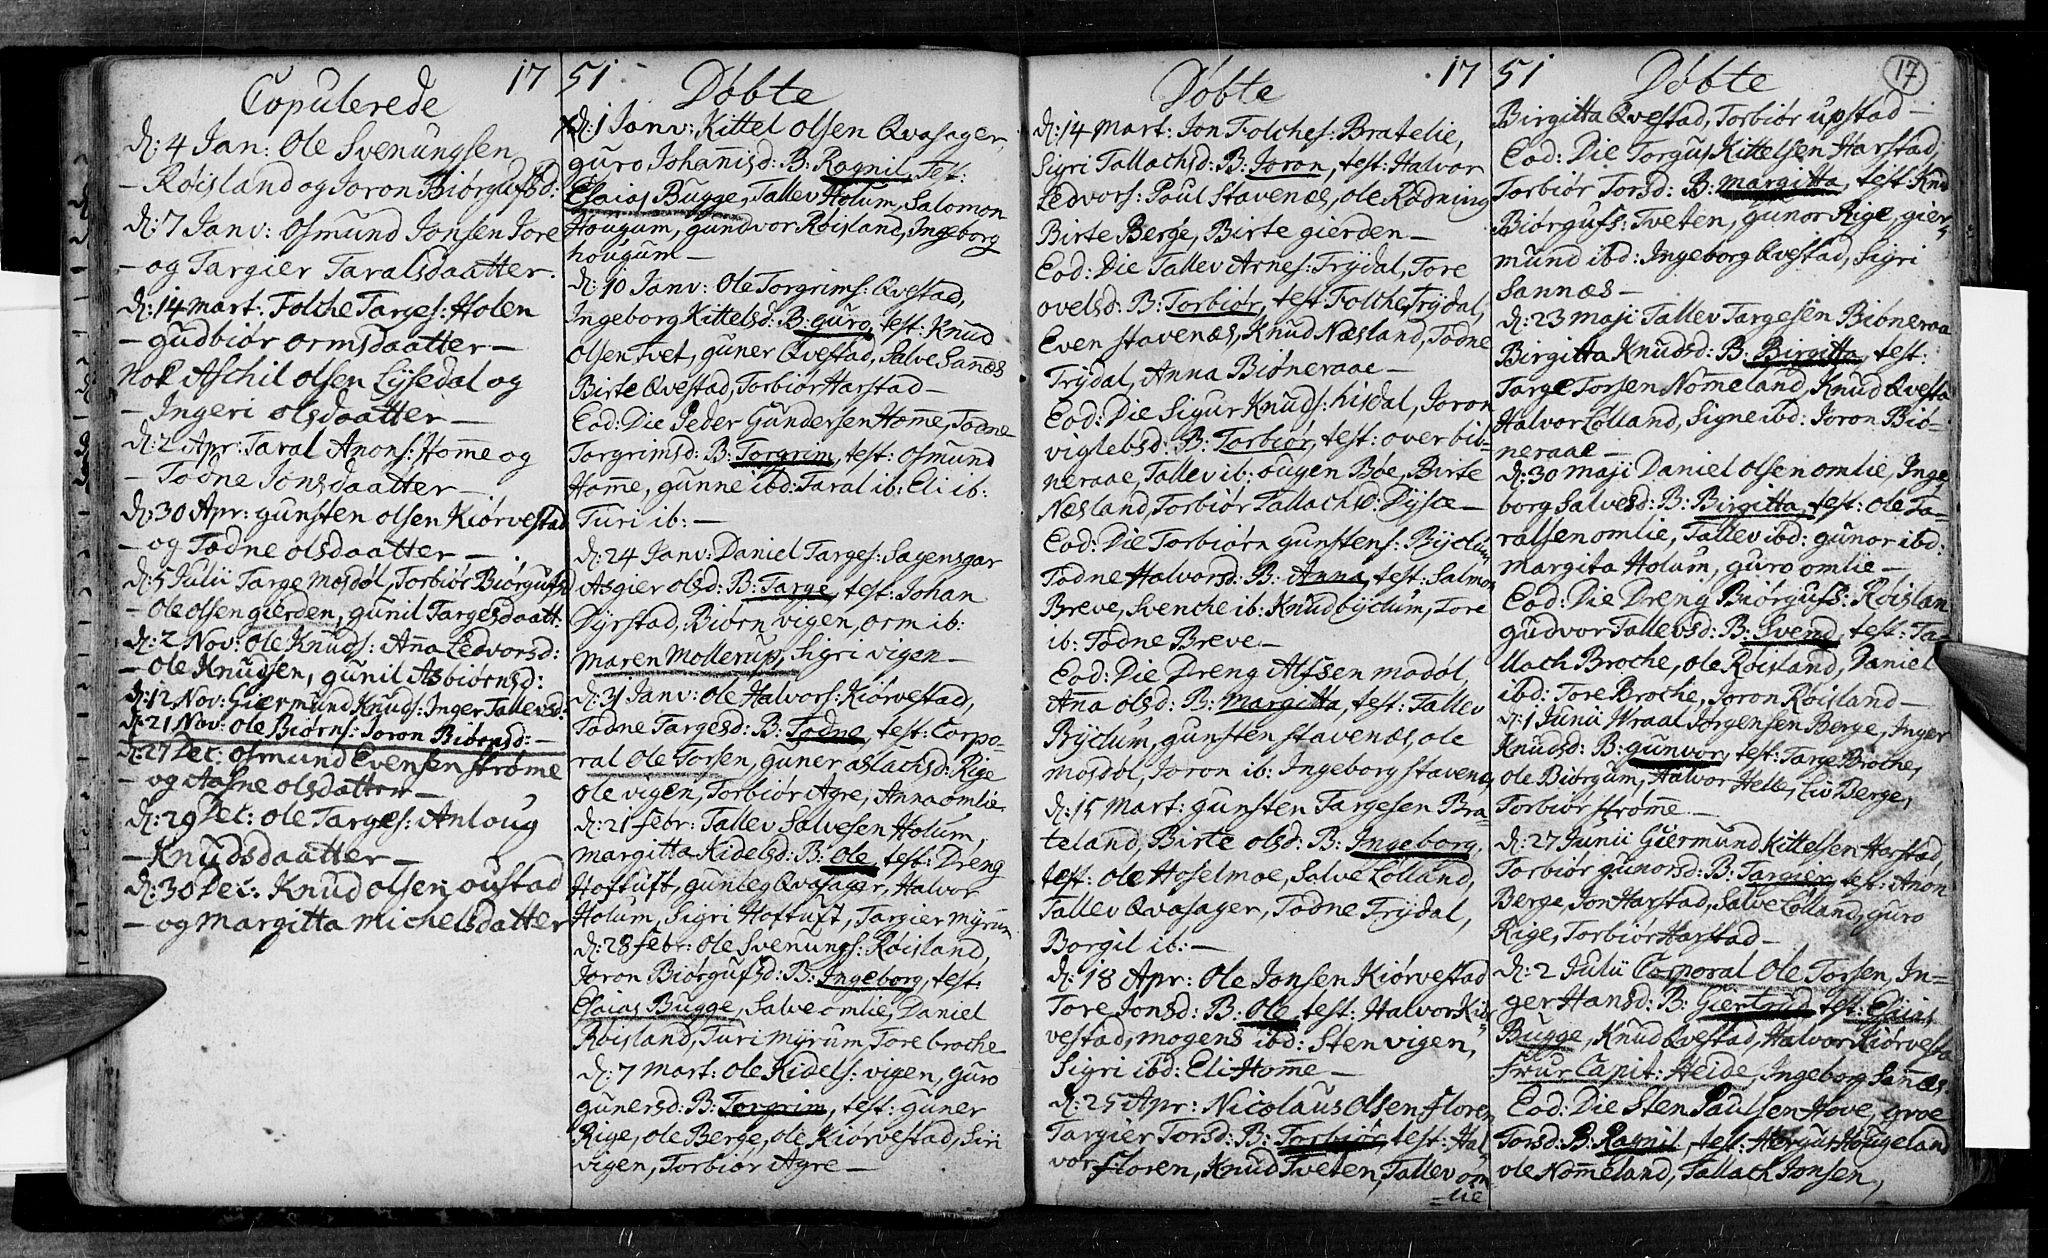 17
Copulerede
d: 4 Jan: Ole Svenungsen
- Røisland og Joron Biørgufsd:
d: 7 Janv: Osmund Jonsen Jore
- og Targier Taralsdaatter.
d: 14 mart: Folche Targes: Holen
- gudbiør ormsdaatter -
Nok Aschil olsen Lysedal og
- Ingeri olsdaatter -
d: 2 Apr: Taral Anons: Home og
- Todne Jonsdaatter -
d: 30 Apr: gunsten olsen Kiørvestad
- og Todne olsdaatter -
d: 5 Julii Targe mosdøl, Torbiør Biørgufsd
- ole olsen gierden, gunil Targesdaatt.
d: 2 Nov: ole Knuds: Anna Ledvorsd:
- ole Knudsen, gunil Asbiørnsd:
d: 12 Nov: Giermund Knuds: Inger Tallevsd:
d: 21 Nov: ole Biørns: Joron Biørnsd: -
d: 27 Dec: osmund Evensen strøme
- og Aasne olsdatter -
d: 29 Dec: ole Targes: Anloug
- Knudsdaatter -
d: 30 Dec: Knud olsen oustad
- og margitta michelsdatter
51
Døbte
d: 1 Janv: Kittel olsen Qvasager
guro Johannisd: B: Ragnil, Test:
Esaias Bugge, Tallev Holum, Salomon
Hougum, gundvor Røisland, Ingeborg
hougum -
d: 10 Janv: ole Torgrims: Qvestad,
Ingeborg Kittelsd: B: guro, test: Knud
olsen Tvet, guner Qvestad, Salve Sanes
Birte Qvestad, Torbiør Harstad -
Eod: Die Peder Gundersen Home, Todne
Torgrimsd: B: Torgrim, test: osmund
Home, gunne ibd: Taral ib: Eli ib:
Turi ib: -
d: 24 Janv: Daniel Targes: Sagensgar
Asgier olsd: B: Targe, test: Johan
Dyrstad, Biørn vigen, orm ib:
maren Mollerup, Sigri vigen -
d: 31 Janv: ole Halvors: Kiørvestad,
Todne Targesd: B: Todne, test: Corpo-
ral Ole Torsen, guner aslachsd: Rige
ole vigen, Torbiør Agre, Anna omlie
d: 21 febr: Tallev Salvesen Holum,
margitta Kidelsd: B: ole, test: Dreng
Hoftuft, gunleg Qvasager, Halvor
Holum, Sigri Hoftuft, Targier myrum
d: 28 febr: ole Svenungs: Røisland,
Joron Biørgufsd: B: Ingeborg, test:
Esaias Bugge, Salve omlie, Daniel
Røisland, Turi myrum, Tore broche
d: 7 mart: ole Kidels: vigen, guro
gunersd: B: Torgrim, test: guner
Rige, ole Berge, ole Kiørvestad, Siri
vigen, Torbiør Agre -
17
Døbte
d: 14 mart: Jon Folches: Bratelie,
Sigri Tallachsd: B: Joron, test: Halvor
Ledvors: Paul Stavenes, ole Rødning
Birte Berge, Birte gierden -
Eod: Die Tallev Arnes: Trydal, Tore
ovelsd: B: Torbiør, test: Folche Trydal,
Even stavenæs, Knud Næsland, Todne
Trydal, Anna Biøneraae -
Eod: Die Sigur Knuds: hisdal, Joron
viglebsd: B: Torbiør, test: over biø-
neraae, Tallev ib: ougen Bøe, Birte
Næsland, Torbiør Tallachsd: Dysce -
Eod: Die Torbiørn gunstens: Byclum
Todne Halvorsd: B: Anna, test: Salmon
Breve, Svenche ib: Knud byclum, Tore
ib: Todne Breve -
Eod: Die Dreng Alfsen mosdøl,
Anna olsd: B: margitta, test: Tallev
Byclum, gunsten stavenæs, ole
mosdøl, Joron ib: Ingeborg stavenes,
d: 15 mart: gunsten Targesen Bra-
teland, Birte olsd: B: Ingeborg,
test: ole Hoslemoe, Salve Lolland,
Tallev Qvasager, Todne Trydal,
Borgil ib: -
d: 18 Apr: Ole Jonsen Kiørvestad
Tore Jonsd: B: Ole, test: Halvor Kiør
vestad, mogens ibd: Sten vigen,
Sigri ibd: Eli Home -
d: 25 Apr: Nicolaus olsen floren
Targier Torsd: B: Torbiør, test: Hal
vor floren, Knud Tveten, Tallev om
-lie
51
Døbte
17
Birgitta Qvestad, Torbiør upstad -
Eod: Die Torgus Kittelsen Harstad,
Torbiør Torsd: B: margitta, test: Knud
Biørgufs: Tveten, gunor Rige, gier-
mund ibd: Ingeborg Qvestad, Sigri
Sannæs -
d: 23 maji Tallev Targesen Biøneraa
Birgitta Knudsd: B: Birgitta, test:
Targe Torsen Nomeland, Knud Qvesta
Halvor Lolland, Signe ibd: Joron Biø-
neraae -
d: 30 maji Daniel olsen omlie, Inge
borg Salvesd: B: Birgitta, test: ole Ta-
ralsen omlie, Tallev ibd: gunor ibd:
margita Holum, guro omlie -
Eod: Die Dreng Biørgufs: Røislan
gudvor Tallevsd: B: Svend, test: Ta-
llach Broche, ole Røisland, Daniel
ibd: Tore Broche, Joron Røisland -
d: 1 Junii Wraal Jørgensen Berge, Inger
Knudsd: B: gunvor, test: Targe Broche,
ole Biørgum, Halvor Helle, Liv Berge,
Torbiør strøme -
d: 27 Junii Giermund Kittelsen Harstad,
Torbiør gunorsd: B: Targier, test: Anon
Berge, Jon Harstad, Salve Lolland, guro
Rige, Torbiør Harstad -
d: 2 Julii Corporal Ole Torsen, In-
ger Hansd: B: Giertrud test: Esaias
Bugge, Knud Qvestad, Halvor Kiørvesta
Frur Capit: Heide, Ingeborg Sannæs.
Eod: Die Sten Paulsen Hove, groe
Torsd: B: Ragnil, test: Hergus Hougeland
ole Nomeland, Tallach Jonsen,